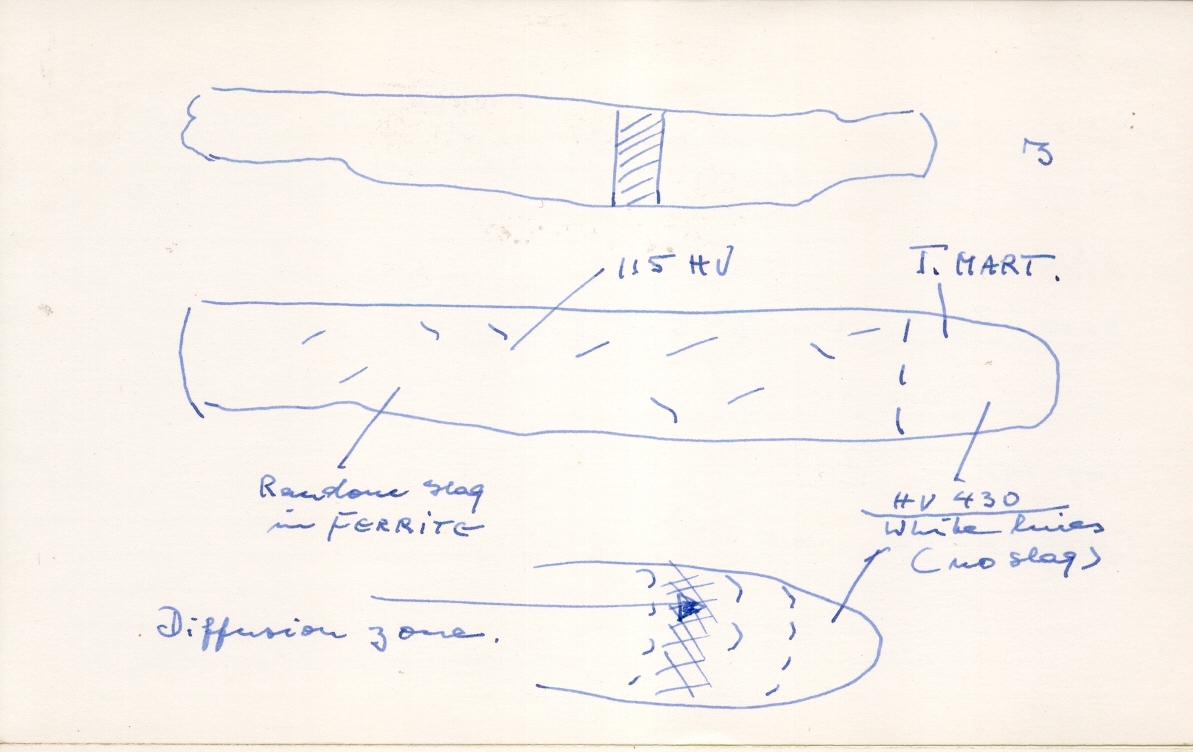 3
115 HV
T. MART.
Random slag
in FERRITE
HV 430
White lines
(no slag)
Diffusion zone.